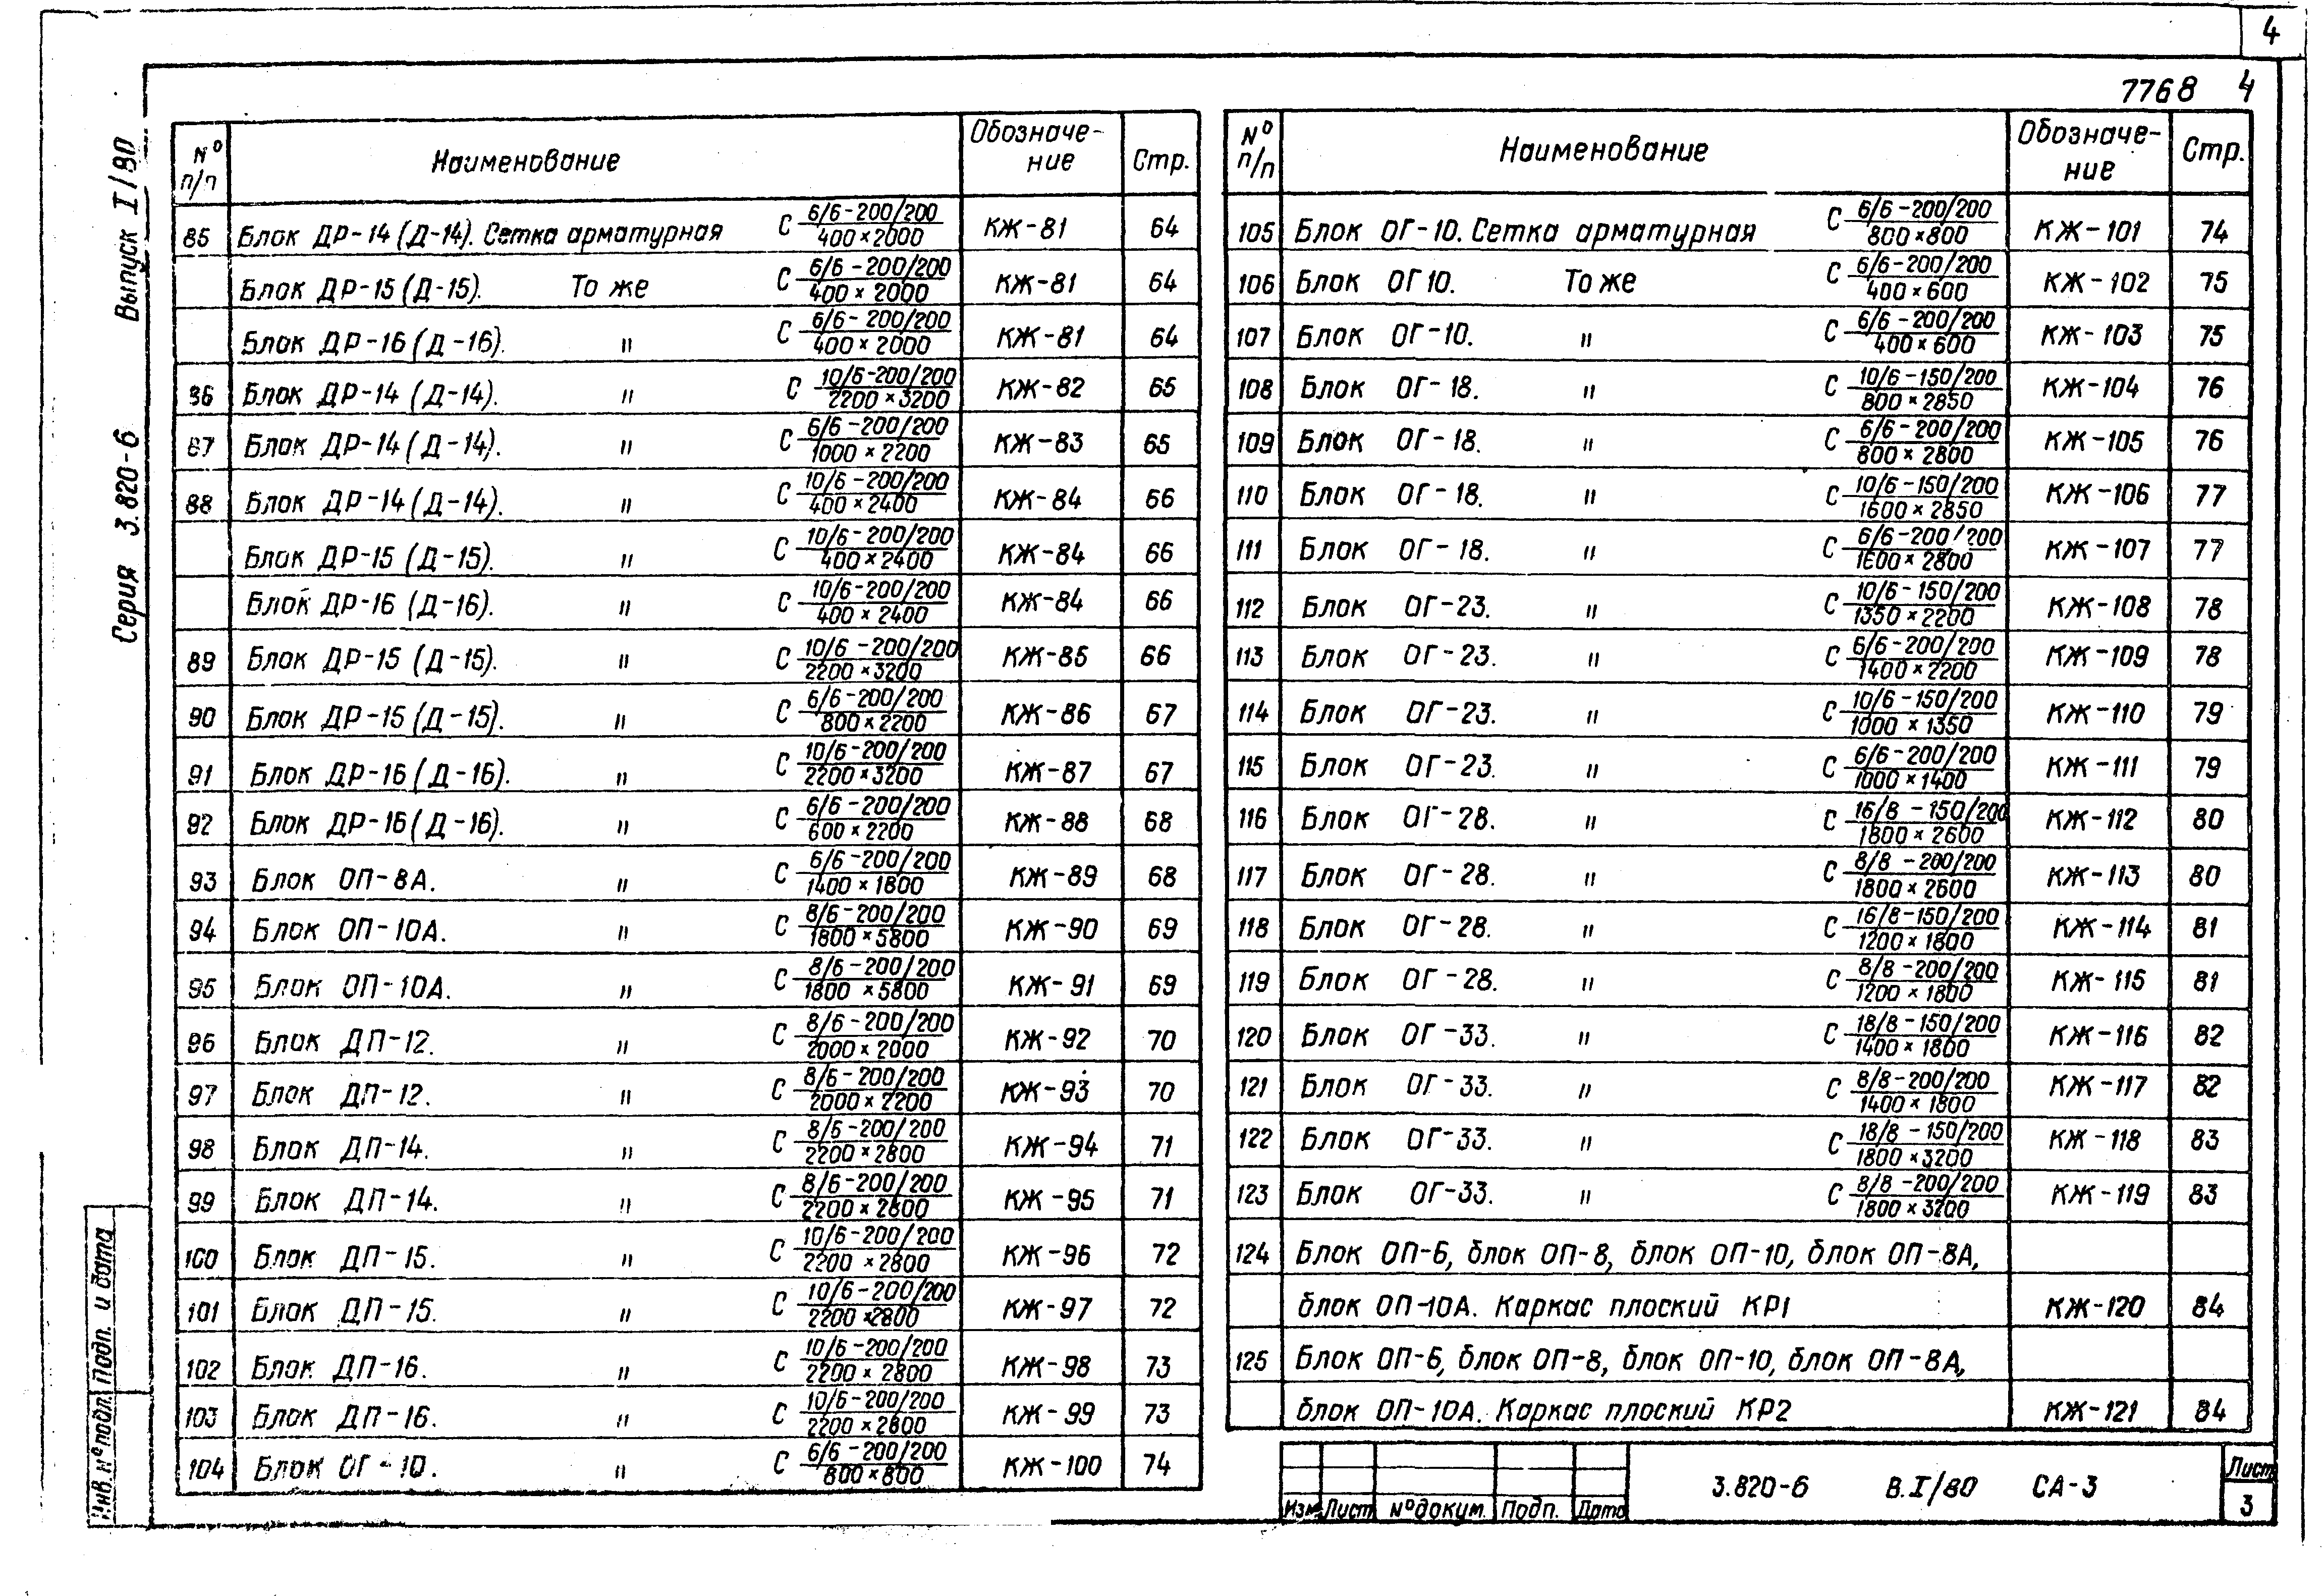 4
7768 4
Серия 3.820-6 Выпуск I/80
№ п/п Наименование Обозначе-ние Стр.
85 Блок ДР-14 (Д-14). Сетка арматурная С 6/6-200/200 / 400×2000 КЖ-81 64
Блок ДР-15 (Д-15). То же С 6/6-200/200 / 400×2000 КЖ-81 64
Блок ДР-16 (Д-16). " С 6/6-200/200 / 400×2000 КЖ-81 64
86 Блок ДР-14 (Д-14). " С 10/6-200/200 / 2200×3200 КЖ-82 65
87 Блок ДР-14 (Д-14). " С 6/6-200/200 / 1000×2200 КЖ-83 65
88 Блок ДР-14 (Д-14). " С 10/6-200/200 / 400×2400 КЖ-84 66
Блок ДР-15 (Д-15). " С 10/6-200/200 / 400×2400 КЖ-84 66
Блок ДР-16 (Д-16). " С 10/6-200/200 / 400×2400 КЖ-84 66
89 Блок ДР-15 (Д-15). " С 10/6-200/200 / 2200×3200 КЖ-85 66
90 Блок ДР-15 (Д-15). " С 6/6-200/200 / 800×2200 КЖ-86 67
91 Блок ДР-16 (Д-16). " С 10/6-200/200 / 2200×3200 КЖ-87 67
92 Блок ДР-16 (Д-16). " С 6/6-200/200 / 600×2200 КЖ-88 68
93 Блок ОП-8А. " С 6/6-200/200 / 1400×1800 КЖ-89 68
94 Блок ОП-10А. " С 8/6-200/200 / 1800×5800 КЖ-90 69
95 Блок ОП-10А. " С 8/6-200/200 / 1800×5800 КЖ-91 69
96 Блок ДП-12. " С 8/6-200/200 / 2000×2000 КЖ-92 70
97 Блок ДП-12. " С 8/6-200/200 / 2000×2200 КЖ-93 70
98 Блок ДП-14. " С 8/6-200/200 / 2200×2800 КЖ-94 71
99 Блок ДП-14. " С 8/6-200/200 / 2200×2800 КЖ-95 71
100 Блок ДП-15. " С 10/6-200/200 / 2200×2800 КЖ-96 72
101 Блок ДП-15. " С 10/6-200/200 / 2200×2800 КЖ-97 72
102 Блок ДП-16. " С 10/6-200/200 / 2200×2800 КЖ-98 73
103 Блок ДП-16. " С 10/6-200/200 / 2200×2800 КЖ-99 73
104 Блок ОГ-10. " С 6/6-200/200 / 800×800 КЖ-100 74
№ п/п Наименование Обозначе-ние Стр.
105 Блок ОГ-10. Сетка арматурная С 6/6-200/200 / 800×800 КЖ-101 74
106 Блок ОГ10. То же С 6/6-200/200 / 400×600 КЖ-102 75
107 Блок ОГ-10. " С 6/6-200/200 / 400×600 КЖ-103 75
108 Блок ОГ-18. " С 10/6-150/200 / 800×2850 КЖ-104 76
109 Блок ОГ-18. " С 6/6-200/200 / 800×2800 КЖ-105 76
110 Блок ОГ-18. " С 10/6-150/200 / 1600×2850 КЖ-106 77
111 Блок ОГ-18. " С 6/6-200/200 / 1600×2800 КЖ-107 77
112 Блок ОГ-23. " С 10/6-150/200 / 1350×2200 КЖ-108 78
113 Блок ОГ-23. " С 6/6-200/200 / 1400×2200 КЖ-109 78
114 Блок ОГ-23. " С 10/6-150/200 / 1000×1350 КЖ-110 79
115 Блок ОГ-23. " С 6/6-200/200 / 1000×1400 КЖ-111 79
116 Блок ОГ-28. " С 16/8-150/200 / 1800×2600 КЖ-112 80
117 Блок ОГ-28. " С 8/8-200/200 / 1800×2600 КЖ-113 80
118 Блок ОГ-28. " С 16/8-150/200 / 1200×1800 КЖ-114 81
119 Блок ОГ-28. " С 8/8-200/200 / 1200×1800 КЖ-115 81
120 Блок ОГ-33. " С 18/8-150/200 / 1400×1800 КЖ-116 82
121 Блок ОГ-33. " С 8/8-200/200 / 1400×1800 КЖ-117 82
122 Блок ОГ-33. " С 18/8-150/200 / 1800×3200 КЖ-118 83
123 Блок ОГ-33. " С 8/8-200/200 / 1800×3200 КЖ-119 83
124 Блок ОП-6, блок ОП-8, блок ОП-10, блок ОП-8А,
блок ОП-10А. Каркас плоский КР1 КЖ-120 84
125 Блок ОП-6, блок ОП-8, блок ОП-10, блок ОП-8А,
блок ОП-10А. Каркас плоский КР2 КЖ-121 84
Инв. № подл. Подп. и дата
Изм Лист № докум. Подп. Дата
3.820-6 В.I/80 СА-3
Лист
3